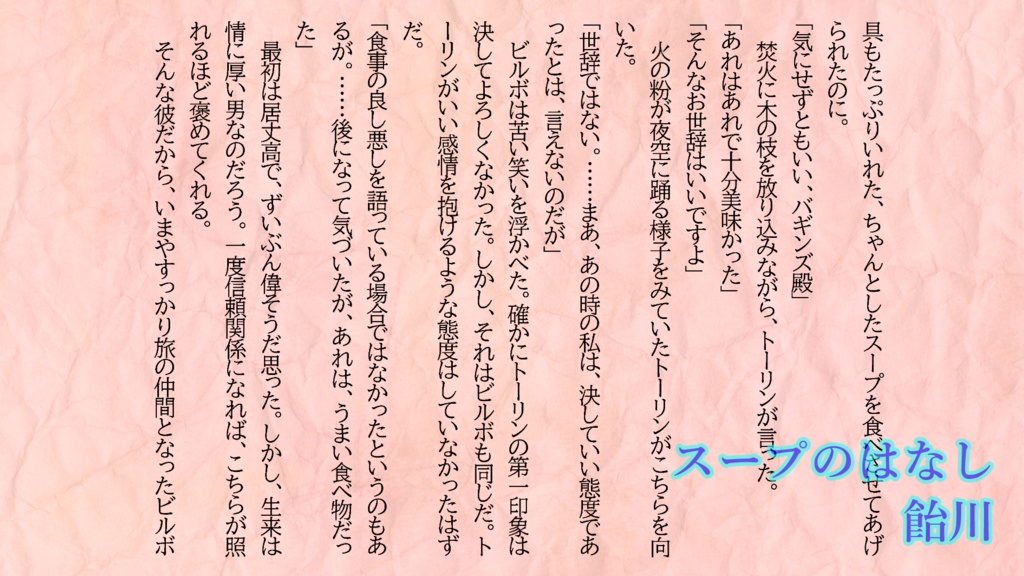 具もたっぷりいれた、ちゃんとしたスープを食べさせてあげ
られたのに。
「気にせずともいい、バギンズ殿」
　焚火に木の枝を放り込みながら、トーリンが言った。
「あれはあれで十分美味かった」
「そんなお世辞はいいですよ」
　火の粉が夜空に踊る様子をみていたトーリンがこちらを向
いた。
「世辞ではない。……まあ、あの時の私は、決していい態度であ
ったとは、言えないのだが」
　ビルボは苦い笑いを浮かべた。確かにトーリンの第一印象は
決してよろしくなかった。しかし、それはビルボも同じだ。ト
ーリンがいい感情を抱けるような態度はしていなかったはず
だ。
「食事の良し悪しを語っている場合ではなかったというのもあ
るが。……後になって気づいたが、あれは、うまい食べ物だっ
た」
　最初は居丈高で、ずいぶん偉そうだ思った。しかし、生来は
情に厚い男なのだろう。一度信頼関係になれば、こちらが照
れるほど褒めてくれる。
　そんな彼だから、いまやすっかり旅の仲間となったビルボ
スープのはなし
飴川